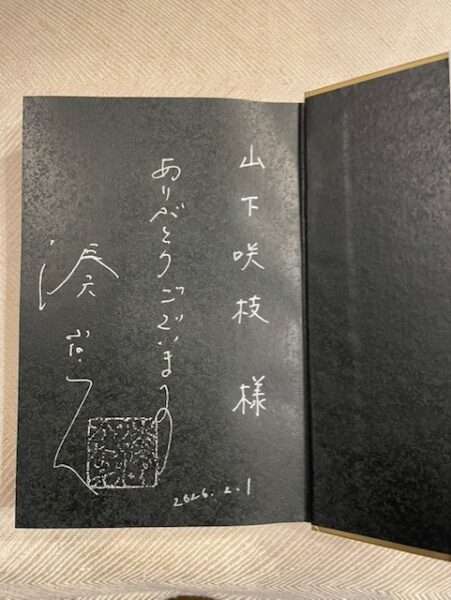 山下咲枝 様
ありがとうございます
湊
2026.2.1